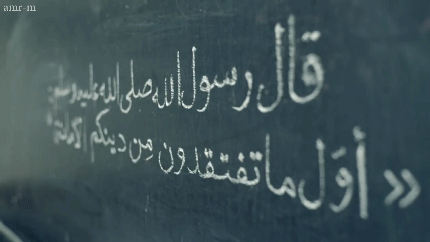 amr-m
قال رسول الله صلى الله عليه وسلم:
« أوَل ما تفتقدون من دينكم الأمانة »